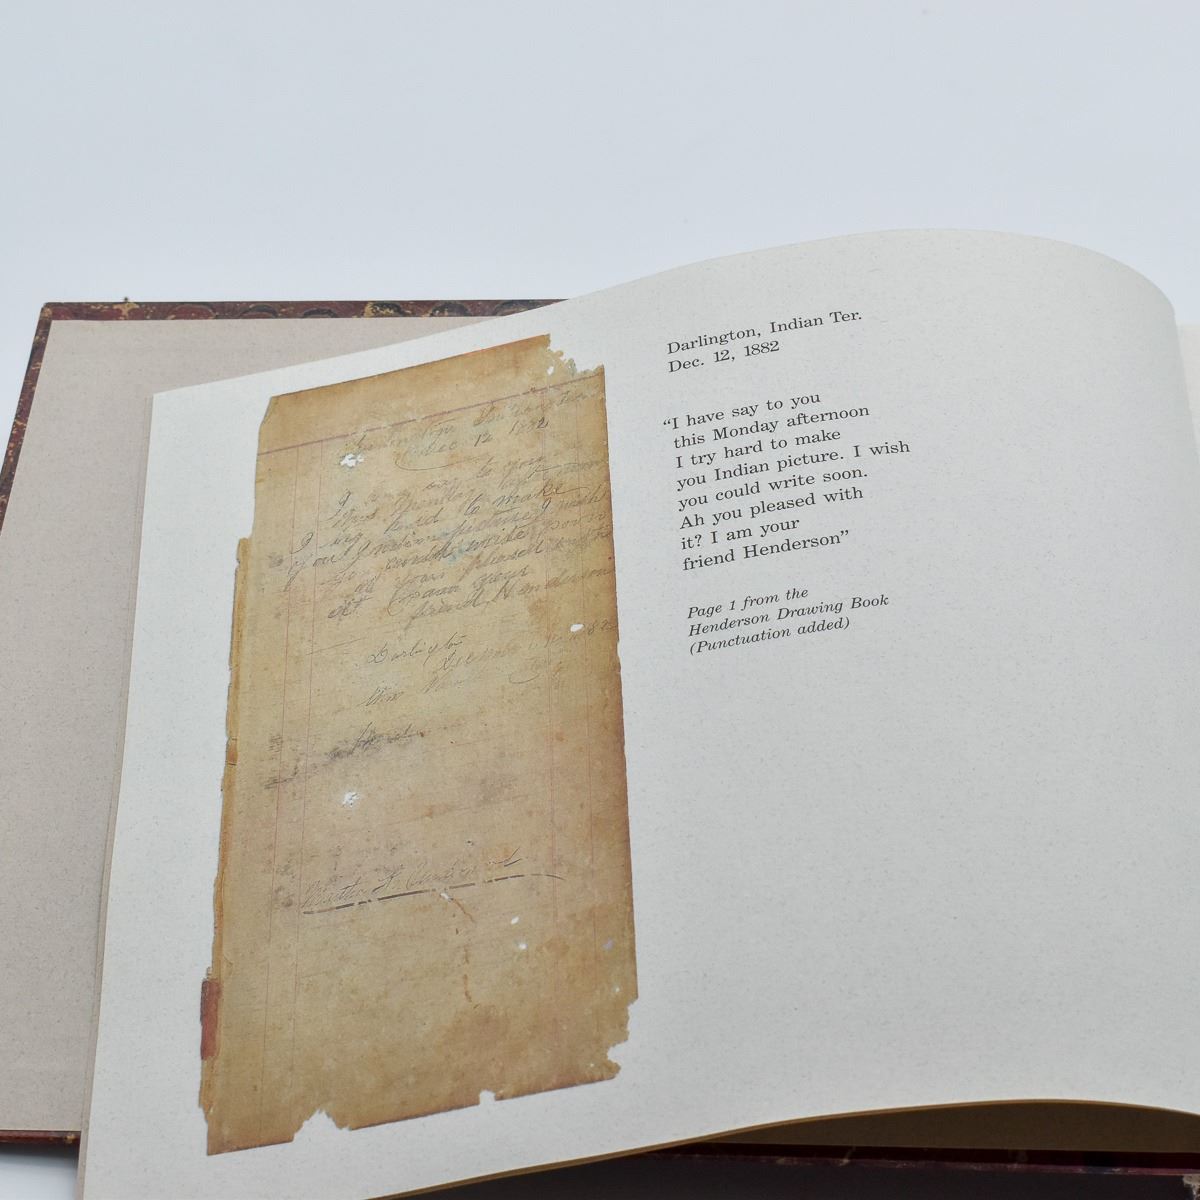 Darlington, Indian Ter.
Dec. 12, 1882
“I have say to you
this Monday afternoon
I try hard to make
you Indian picture. I wish
you could write soon.
Ah you pleased with
it? I am your
friend Henderson”
Page 1 from the
Henderson Drawing Book
(Punctuation added)
Dec 12 1882
I have say to you
this Monday afternoon
I try hard to make
you Indian picture I wish
you could write soon
ah you pleased with
it I am your
friend Henderson
Darlington